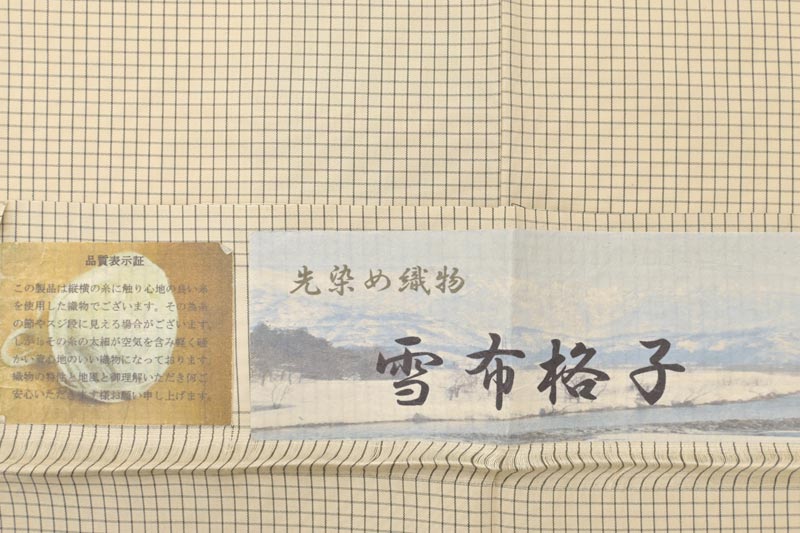 品質表示証
この製品は縦横の糸に触り心地の良い糸
を使用した織物でございます。その為糸
の節やスジ段に見える場合がございます。
しかしその糸の太細が空気を含み軽く暖
かい着心地のいい織物になっております。
織物の特性と地風と御理解いただき何ご
安心いただきます様お願い申し上げます。
先染め織物
雪布格子